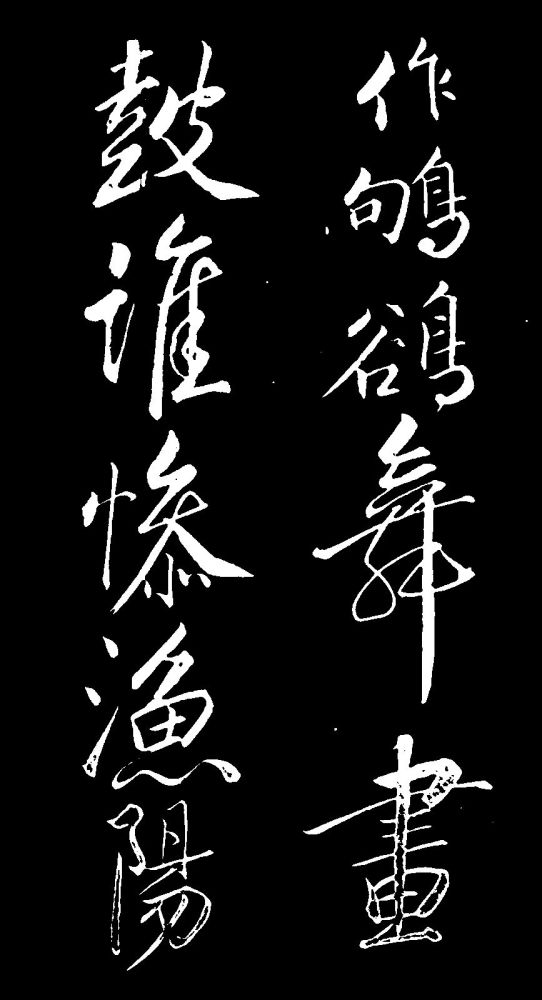 作鴝鵒舞畫
鼓誰慘漁陽